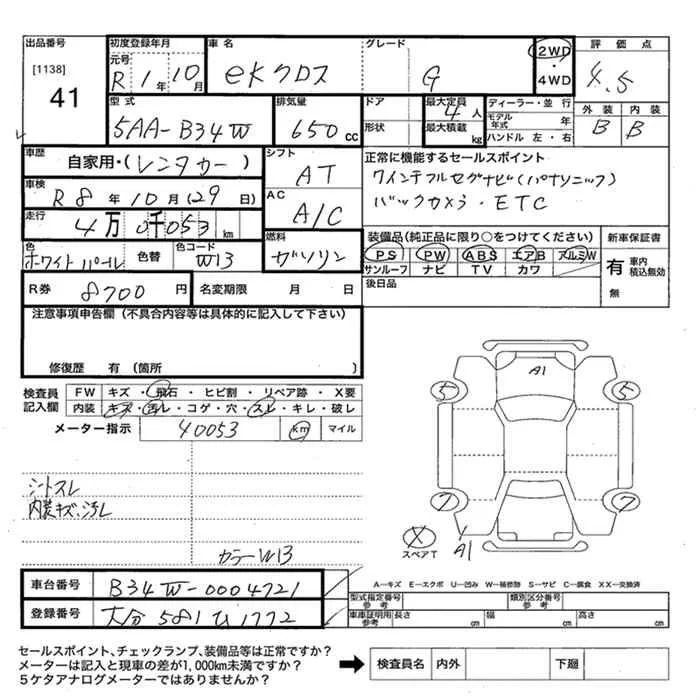 出品番号 初度登録年月 車名 グレード 評価点
[1138] 元号
41 R 1年 10月 eKクロス G 2WD・4WD 4.5
型式 排気量 ドア 最大定員 4人 ディーラー・並行 外装 内装
5AA-B34W 650cc 形状 最大積載 kg モデル年式 年 B B
ハンドル 左・右
車歴 自家用・(レンタカー) シフト AT 正常に機能するセールスポイント
車検 R8年10月(29日) AC A/C ワイン フルセグナビ(パナソニック)
バックカメラ・ETC
走行 4万0千053km
装備品(純正品に限り○をつけてください) 新車保証書
色 ホワイトパール 色替 色コード W13 燃料 ガソリン PS PW ABS エアB アルミW 有 車内積込無効
サンルーフ ナビ TV カワ 無
R券 8700円 名変期限 月 日 後日品
注意事項申告欄(不具合内容等は具体的に記入して下さい)
修復歴 有(箇所 )
検査員記入欄 FW キズ・飛石・ヒビ割・リペア跡・X要
内装 キズ・汚レ・コゲ・穴・スレ・キレ・破レ
メーター指示 40053 km マイル
A1
5 5
シートスレ
内装キズ、汚レ
7 7
X
スペアT A1
カラーW13
A―キズ E―エクボ U―凹み W―補修跡 S―サビ C―腐食 XX―交換済
車台番号 B34W-0004721 型式指定番号 参考 類別区分番号 参考
登録番号 大分 581 ひ 1772 車庫証明用 参考 長さ cm 幅 cm 高さ cm
セールスポイント、チェックランプ、装備品等は正常ですか?
メーターは記入と現車の差が1,000km未満ですか? 検査員名 内外 下廻
5ケタアナログメーターではありませんか?